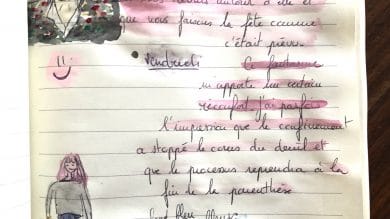 autour d'elle et
que nous faisons la fête comme
c'était prévu.
• Vendredi Ce fantasme
m'apporte un certain
réconfort j'ai parfois
l'impression que le confinement
a stoppé le cours du deuil et
que le processus reprendra à la
fin de la parenthèse